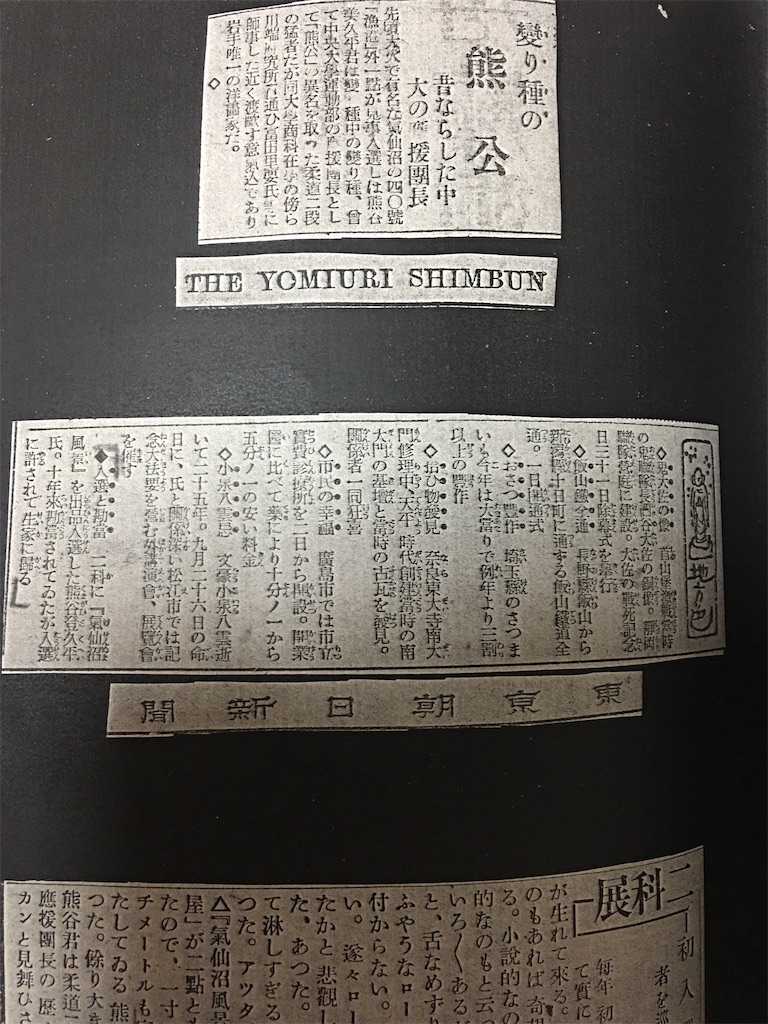 變り種の
熊公
昔ならした中
大の應援團長
先頃大火で有名な氣仙沼の四〇號
「漁港」外一點が見事入選した熊谷
美久平君は變り種中の變り種、曾
て中央大學運動部の應援團長とし
て「熊公」の異名を取った柔道二段
の猛者だが同大學商科在學の傍ら
川端研究所に通ひ富田
師事した近く渡歐する意氣込であり
岩手唯一の洋畫家だ。
◇
THE YOMIURI SHIMBUN
地方色
◇鬼大佐の像 首山堡激戰當時
の 聯隊長 谷大佐の銅像。靜岡
聯隊營庭に建設。大佐の戰死記念
日三十一日除幕式を擧行
◇飯山鐵全通 長野縣飯山から
新潟縣十日町に通ずる飯山鐵道全
通。一日開通式
◇おさつ豐作 埼玉縣のさつま
いも今年は大當りで例年より三割
以上の豐作
◇拾ひ物發見 奈良東大寺南大
門修理中、天平時代創建當時の南
大門の基壇と當時の古瓦を發見。
關係者一同狂喜
◇市民の幸福 廣島市では市立
實費診療所を二日から開設。開業
醫に比べて藥により十分ノ一から
五分ノ一の安い料金
◇小泉八雲忌 文豪小泉八雲逝
いて二十五年。九月二十六日の命
日に、氏と關係深い松江市では記
念大法要を營む外講演會、展覽會
を催す
◆入選と勘當 二科に『氣仙沼
風景』を出品入選した熊谷登久平
氏。十年來勘當されてゐたが入選
に許されて生家に歸る
東京朝日新聞
二科展
初入
者を巡
毎年初
て實に
が生れて來る。
のもあれば奇
る。小説的なの
的なのもと云つ
いろ〱あるが
と、舌なめずり
ふやうなロー
付からない。
い。遂々ロー
たかと悲觀し
た、あつた。
て淋しすぎる
つた。アツタ
△『氣仙沼風景
屋』が二點とも
たので、一寸
チメートルも
たしてゐる熊
つた。餘り大き
熊谷君は柔道二
應援團長の歴
カンと見舞ひさ